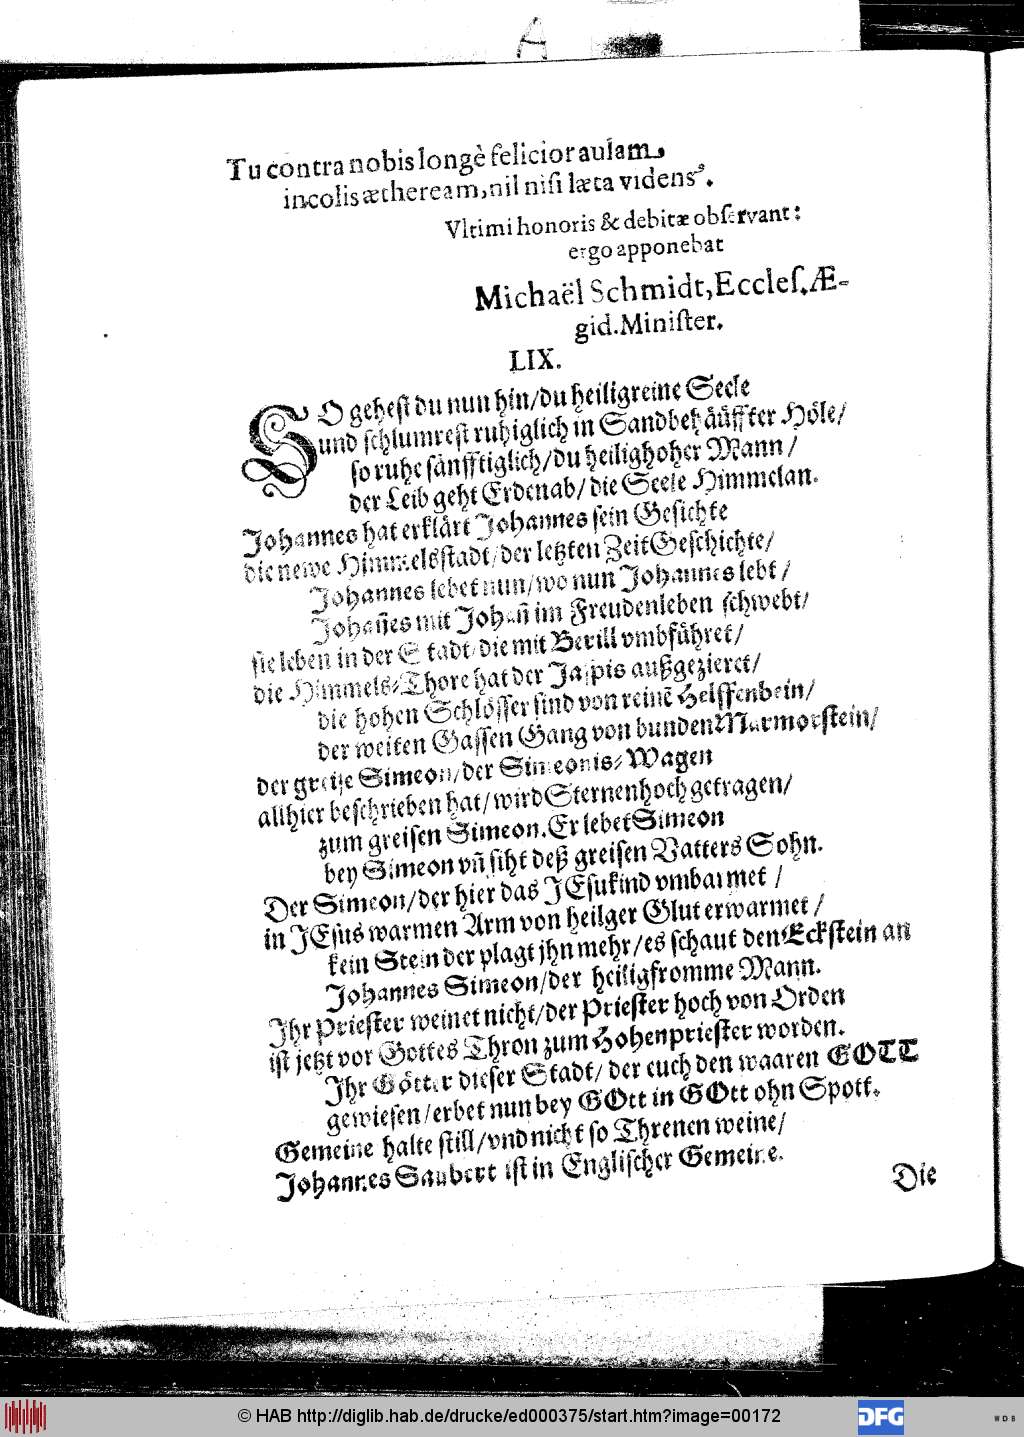 A
Tu contra nobis longè felicior aulam
incolis ætheream, nil nisi læta videns.
Vltimi honoris & debitæ observant:
ergo apponebat
Michaël Schmidt, Eccles. Æ-
gid. Minister.
LIX.
SO gehest du nun hin/du heiligreine Seele
und schlumrest ruhiglich in Sandbehäuffter Höle/
so ruhe sänfftiglich/du heilighoher Mann/
der Leib geht Erdenab/die Seele Himmelan.
Johannes hat erklärt Johannes sein Gesichte
die newe Himmelsstadt/der letzten Zeit Geschichte/
Johannes lebet nun/wo nun Johannes lebt/
Johan̄es mit Johan̄ im Freudenleben schwebt/
sie leben in der Stadt/die mit Berill vmbführet/
die Himmels-Thore hat der Jaspis außgezieret/
die hohen Schlösser sind von reinē Helffenbein/
der weiten Gassen Gang von bunden Marmorstein/
der greise Simeon/der Simeonis-Wagen
allhier beschrieben hat/wird Sternenhoch getragen/
zum greisen Simeon. Er lebet Simeon
bey Simeon vn̄ siht deß greisen Vatters Sohn.
Der Simeon/der hier das JEsukind vmbarmet/
in JEsus warmen Arm von heilger Glut erwarmet/
kein Stein der plagt jhn mehr/es schaut den Eckstein an
Johannes Simeon/der heiligfromme Mann.
Jhr Priester weinet nicht/der Priester hoch von Orden
ist jetzt vor Gottes Thron zum Hohenpriester worden.
Jhr Götter dieser Stadt/der euch den waaren GOTT
gewiesen/erbet nun bey GOtt in GOtt ohn Spott.
Gemeine halte still/vnd nicht so Threnen weine/
Johannes Saubert ist in Englischer Gemeine.
Die
© HAB http://diglib.hab.de/drucke/ed000375/start.htm?image=00172
DFG
WDB